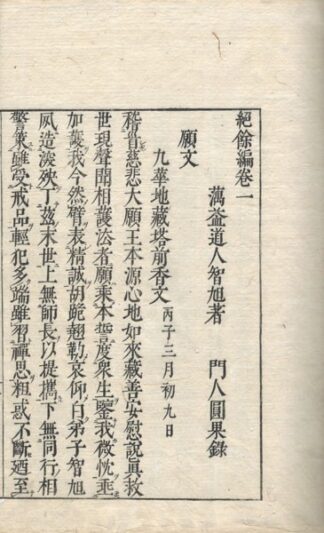 絕餘編卷一
蕅益道人智旭著 門人圓果錄
願文
九華地藏塔前香文 丙子三月初九日
稽首慈悲大願王本源心地如來藏善安慰說眞救
世現聲聞相護法者願乘本誓度衆生鑒我微忱垂
加護我今然臂表精誠胡跪翹勤哀仰白弟子智旭
夙造深殃丁茲末世上無師長以提攜下無同行相
警策雖受戒品輕犯多端雖習禪思粗惑不斷迺至